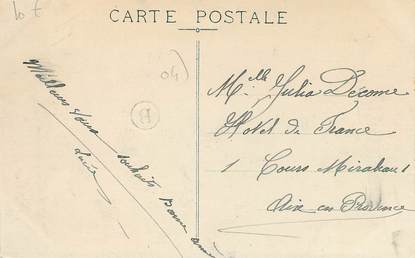 10 €
CARTE POSTALE
04
Meilleurs souhaits Bonne année
Lucie
B
Mlle Julia Décome
Hotel de France
1 Cours Mirabeau 1
Aix en Provence